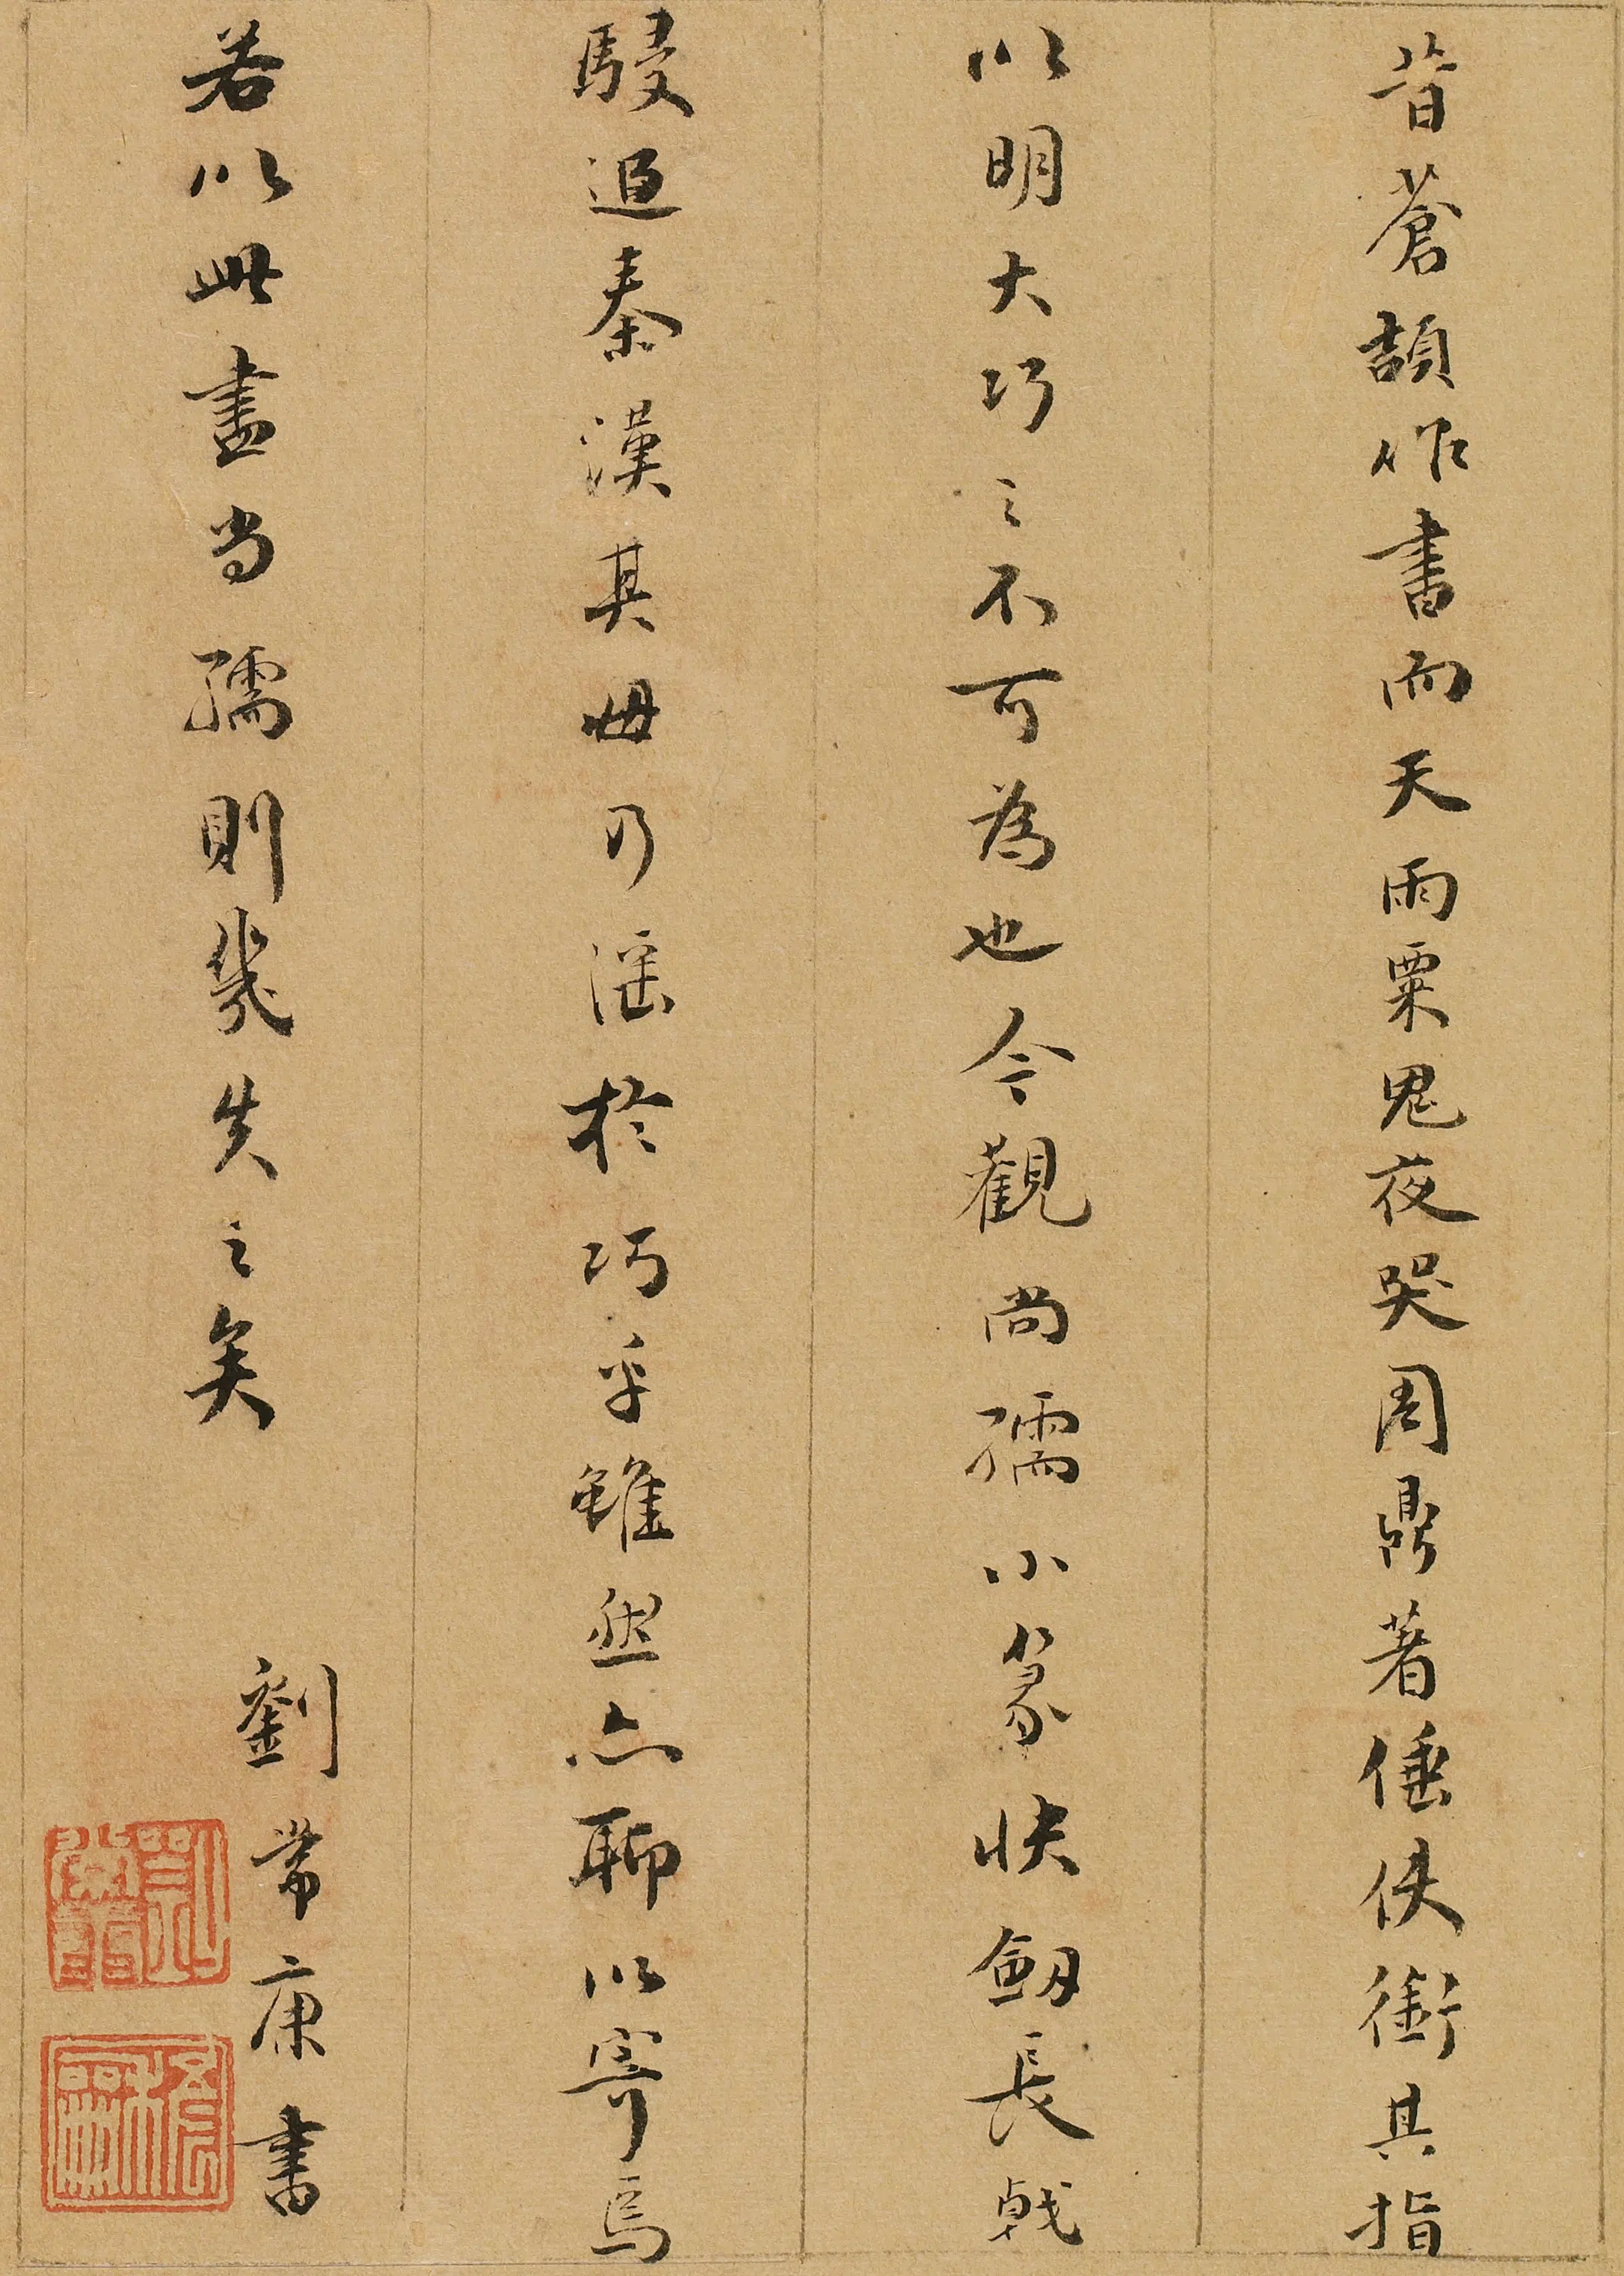 昔蒼頡作書而天雨粟鬼夜哭周鼎著倕使銜其指
以明大巧之不可為也今觀尚孺小篆快劒長戟
駸追秦漢其毋乃淫於巧乎雖然亦聊以寄焉
若以此盡尚孺則幾失之矣
劉常康書